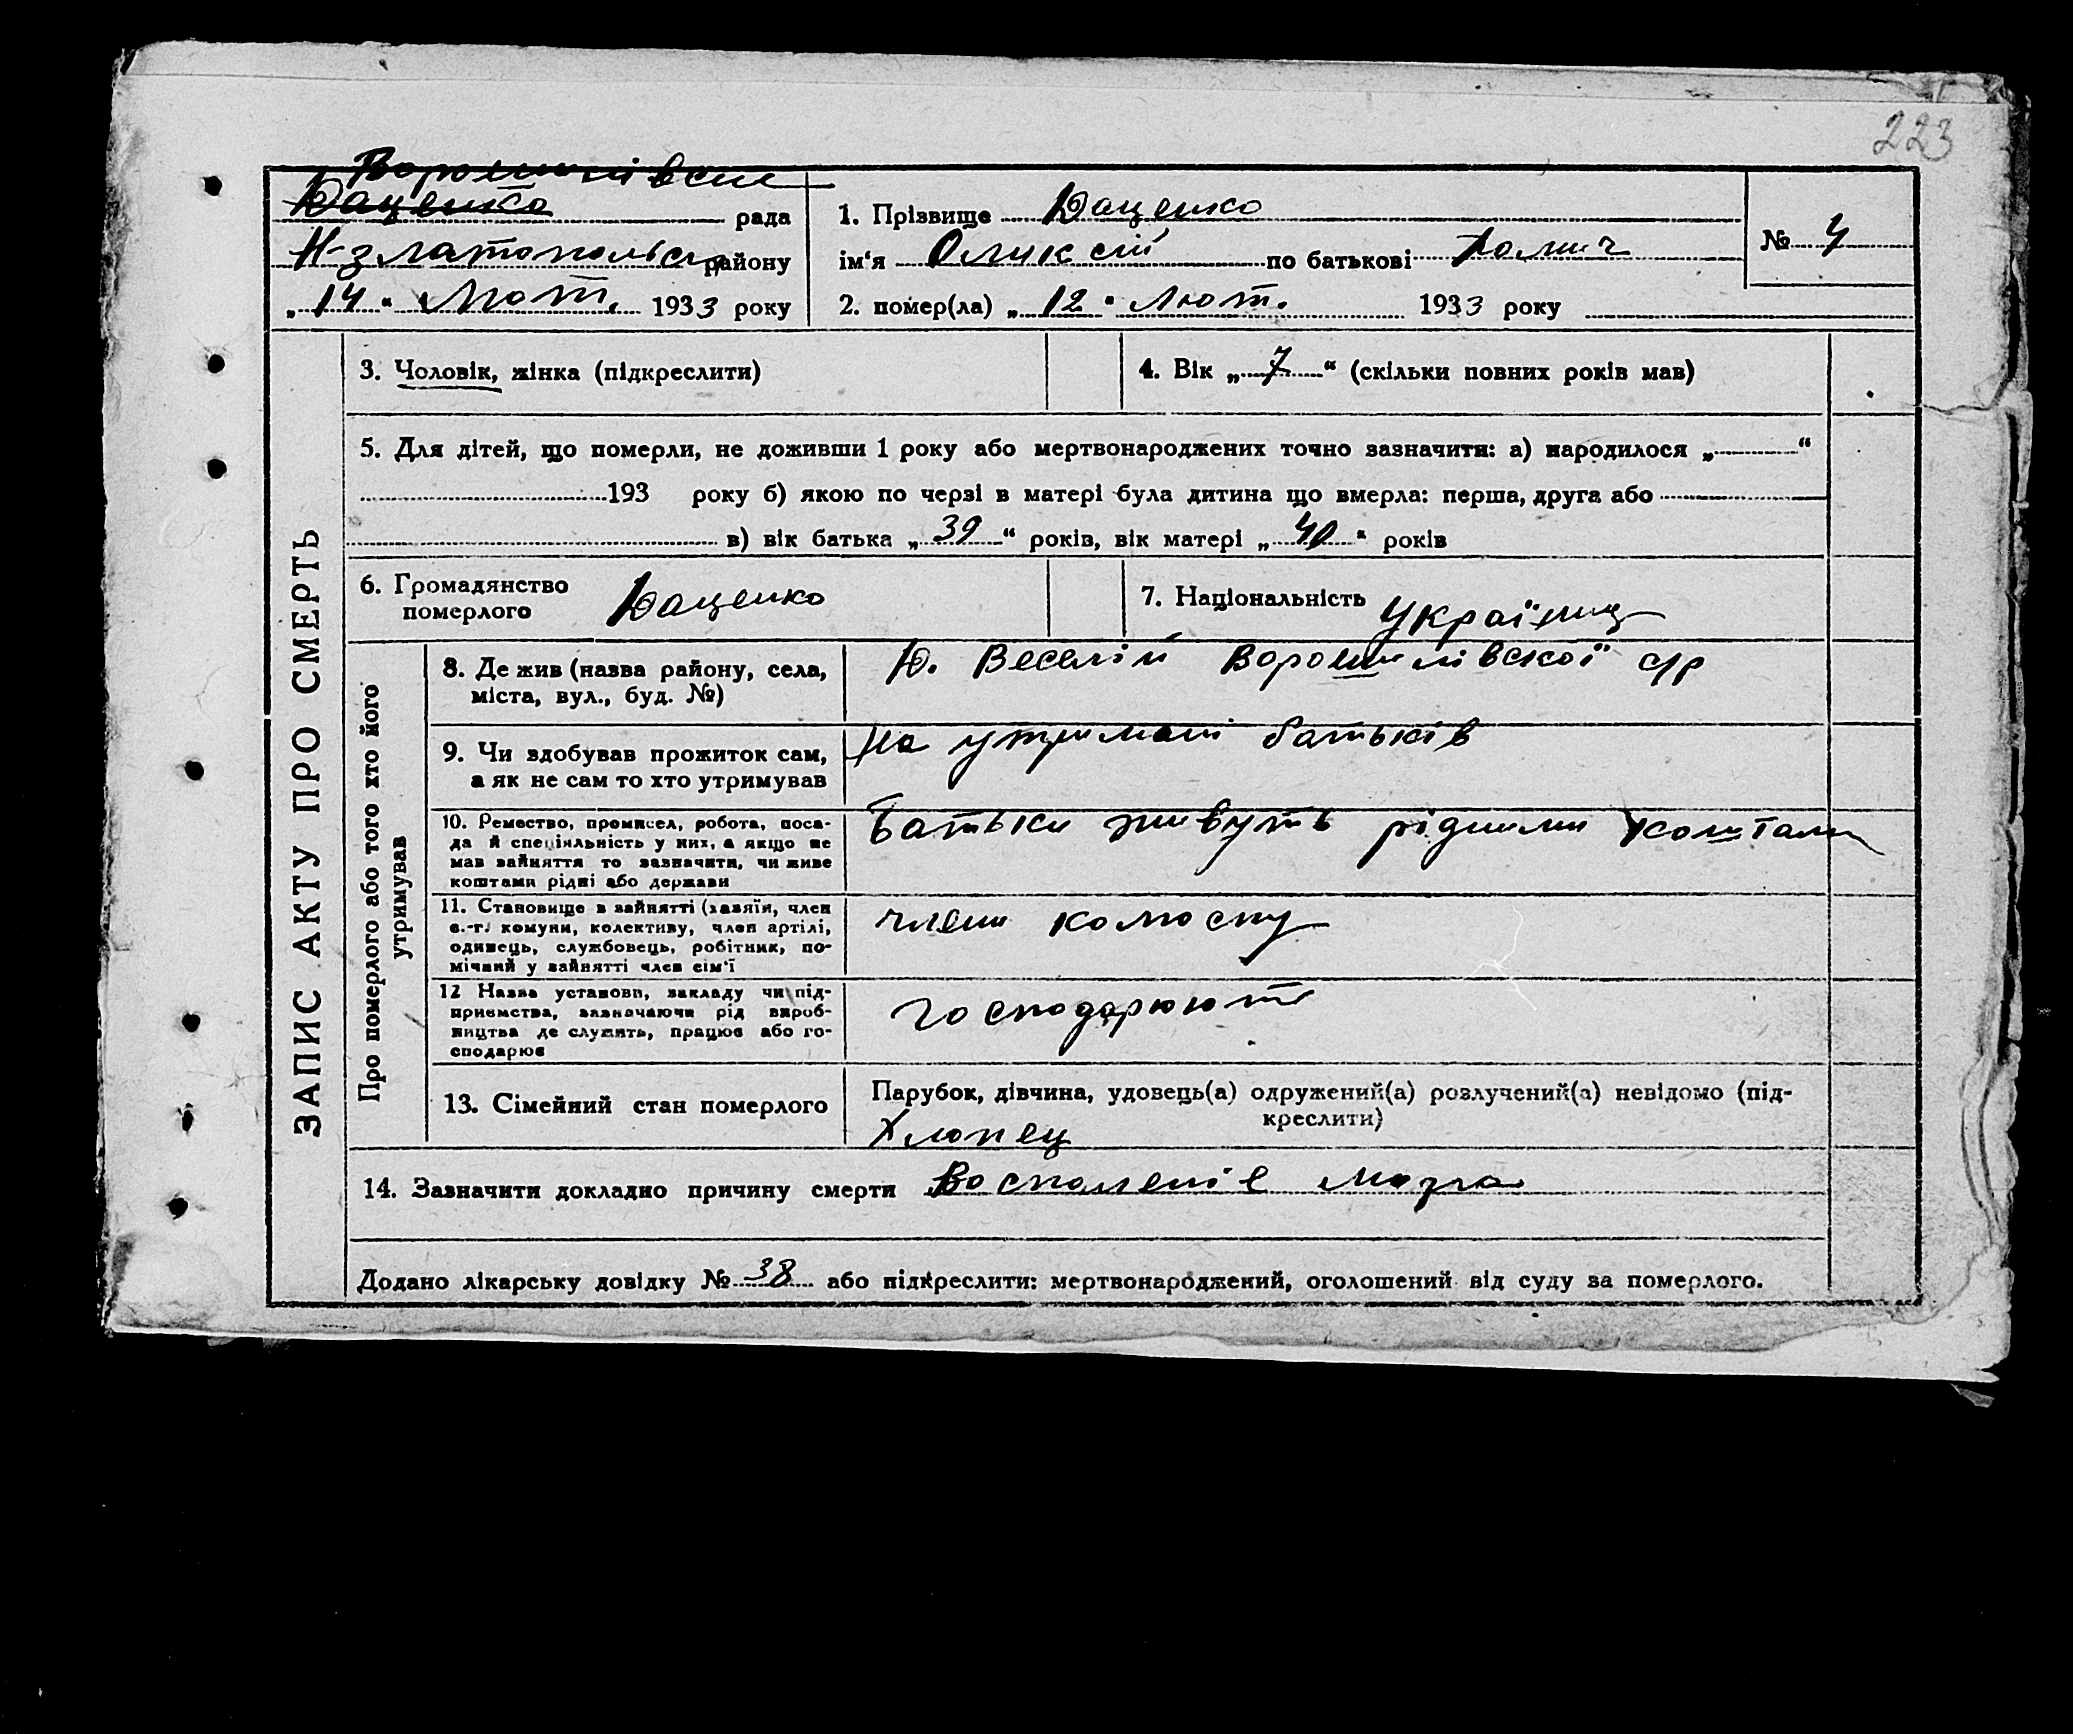 223
Ворошилівске
Даценко рада
Н-златопольськ району
„14“ Лют. 1933 року
1. Прізвище Даценко
ім‘я Оликсій по батькові
2. помер(ла) „12“ Лют. 1933 року
№ 4
ЗАПИС АКТУ ПРО СМЕРТЬ
3. Чоловік, жінка (підкреслити)
4. Вік „7“ (скільки повних років мав)
5. Для дітей, що померли, не доживши 1 року або мертвонароджених точно зазначити: а) народилося „ “
193 року б) якою по черзі в матері була дитина що вмерла: перша, друга або
в) вік батька „39“ років, вік матері „40“ років
6. Громадянство
померлого Даценко
7. Національність Українц
Про померлого або того хто його
утримував
8. Де жив (назва району, села,
міста, вул., буд. №)
Ю. Веселій Ворошилівскої с/р
9. Чи здобував прожиток сам,
а як не сам то хто утримував
На утримані батьків
10. Ремество, промисел, робота, поса-
да й спеціяльність у них, а якщо не
мав зайняття то зазначити, чи живе
коштами рідні або держави
Батьки живуть рідними коштами
11. Становище в зайнятті (хазяїн, член
с.-г. комуни, колективу, член артілі,
одинець, службовець, робітник, по-
мічний у зайнятті член сім‘ї
член колоспу
12 Назва установи, закладу чи під-
приємства, зазначаючи рід вироб-
ництва де служить, працює або го-
сподарює
господарюют
13. Сімейний стан померлого
Парубок, дівчина, удовець(а) одружений(а) розлучений(а) невідомо (під-
креслити)
Хлопец
14. Зазначити докладно причину смерти Воспаленіе мозга
Додано лікарську довідку № 38 або підкреслити: мертвонароджений, оголошений від суду за померлого.